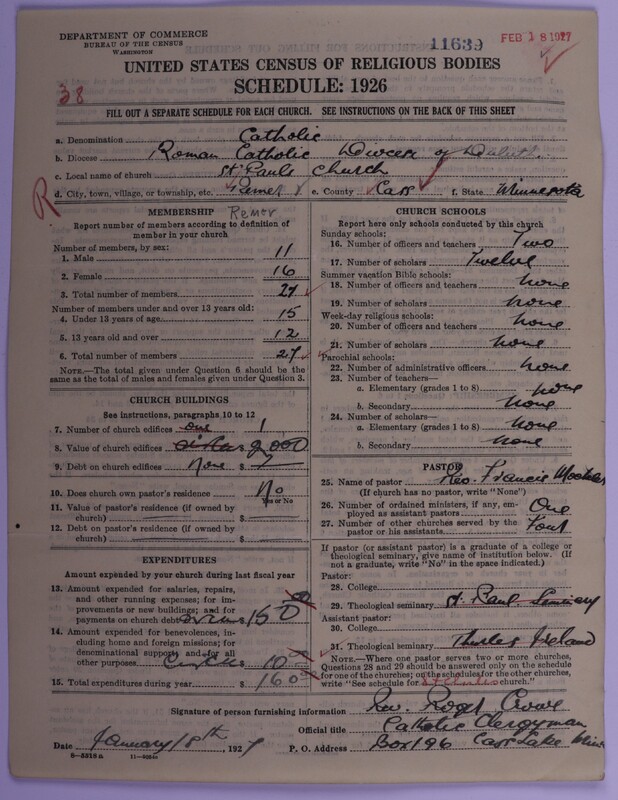 DEPARTMENT OF COMMERCE
BUREAU OF THE CENSUS
WASHINGTON
11639
FEB 18 1927
UNITED STATES CENSUS OF RELIGIOUS BODIES
SCHEDULE: 1926
38
FILL OUT A SEPARATE SCHEDULE FOR EACH CHURCH. SEE INSTRUCTIONS ON THE BACK OF THIS SHEET
a. Denomination Catholic
b. Diocese Roman Catholic Diocese of Duluth
c. Local name of church St Pauls Church
d. City, town, village, or township, etc. Remer e. County Cass f. State Minnesota
R
MEMBERSHIP Remer
Report number of members according to definition of member in your church
Number of members, by sex:
1. Male 11
2. Female 16
3. Total number of members 27
Number of members under and over 13 years old:
4. Under 13 years of age 15
5. 13 years old and over 12
6. Total number of members 27
NOTE.—The total given under Question 6 should be the same as the total of males and females given under Question 3.
CHURCH BUILDINGS
See instructions, paragraphs 10 to 12
7. Number of church edifices one 1
8. Value of church edifices $ 2000
9. Debt on church edifices None $
10. Does church own pastor's residence No
Yes or No
11. Value of pastor's residence (if owned by church) $
12. Debt on pastor's residence (if owned by church) $
EXPENDITURES
Amount expended by your church during last fiscal year
13. Amount expended for salaries, repairs, and other running expenses; for improvements or new buildings; and for payments on church debt 150
14. Amount expended for benevolences, including home and foreign missions; for denominational support; and for all other purposes 10
15. Total expenditures during year $ 160
CHURCH SCHOOLS
Report here only schools conducted by this church
Sunday schools:
16. Number of officers and teachers Two
17. Number of scholars Twelve
Summer vacation Bible schools:
18. Number of officers and teachers none
19. Number of scholars none
Week-day religious schools:
20. Number of officers and teachers none
21. Number of scholars none
Parochial schools:
22. Number of administrative officers none
23. Number of teachers—
a. Elementary (grades 1 to 8) none
b. Secondary none
24. Number of scholars—
a. Elementary (grades 1 to 8) none
b. Secondary none
PASTOR
25. Name of pastor Rev. Francis
(If church has no pastor, write "None")
26. Number of ordained ministers, if any, employed as assistant pastors One
27. Number of other churches served by the pastor or his assistants Four
If pastor (or assistant pastor) is a graduate of a college or theological seminary, give name of institution below. (If not a graduate, write "No" in the space indicated.)
Pastor:
28. College
29. Theological seminary St. Paul Seminary
Assistant pastor:
30. College
31. Theological seminary Thurles Ireland
NOTE.—Where one pastor serves two or more churches, Questions 28 and 29 should be answered only on the schedule for one of the churches; on the schedules for the other churches, write "See schedule for St Charles church."
Signature of person furnishing information Rev. Roger Crowe
Official title Catholic Clergyman
Date January 18th, 1927 P. O. Address Box 126 Cass Lake Minn
8—3318 a